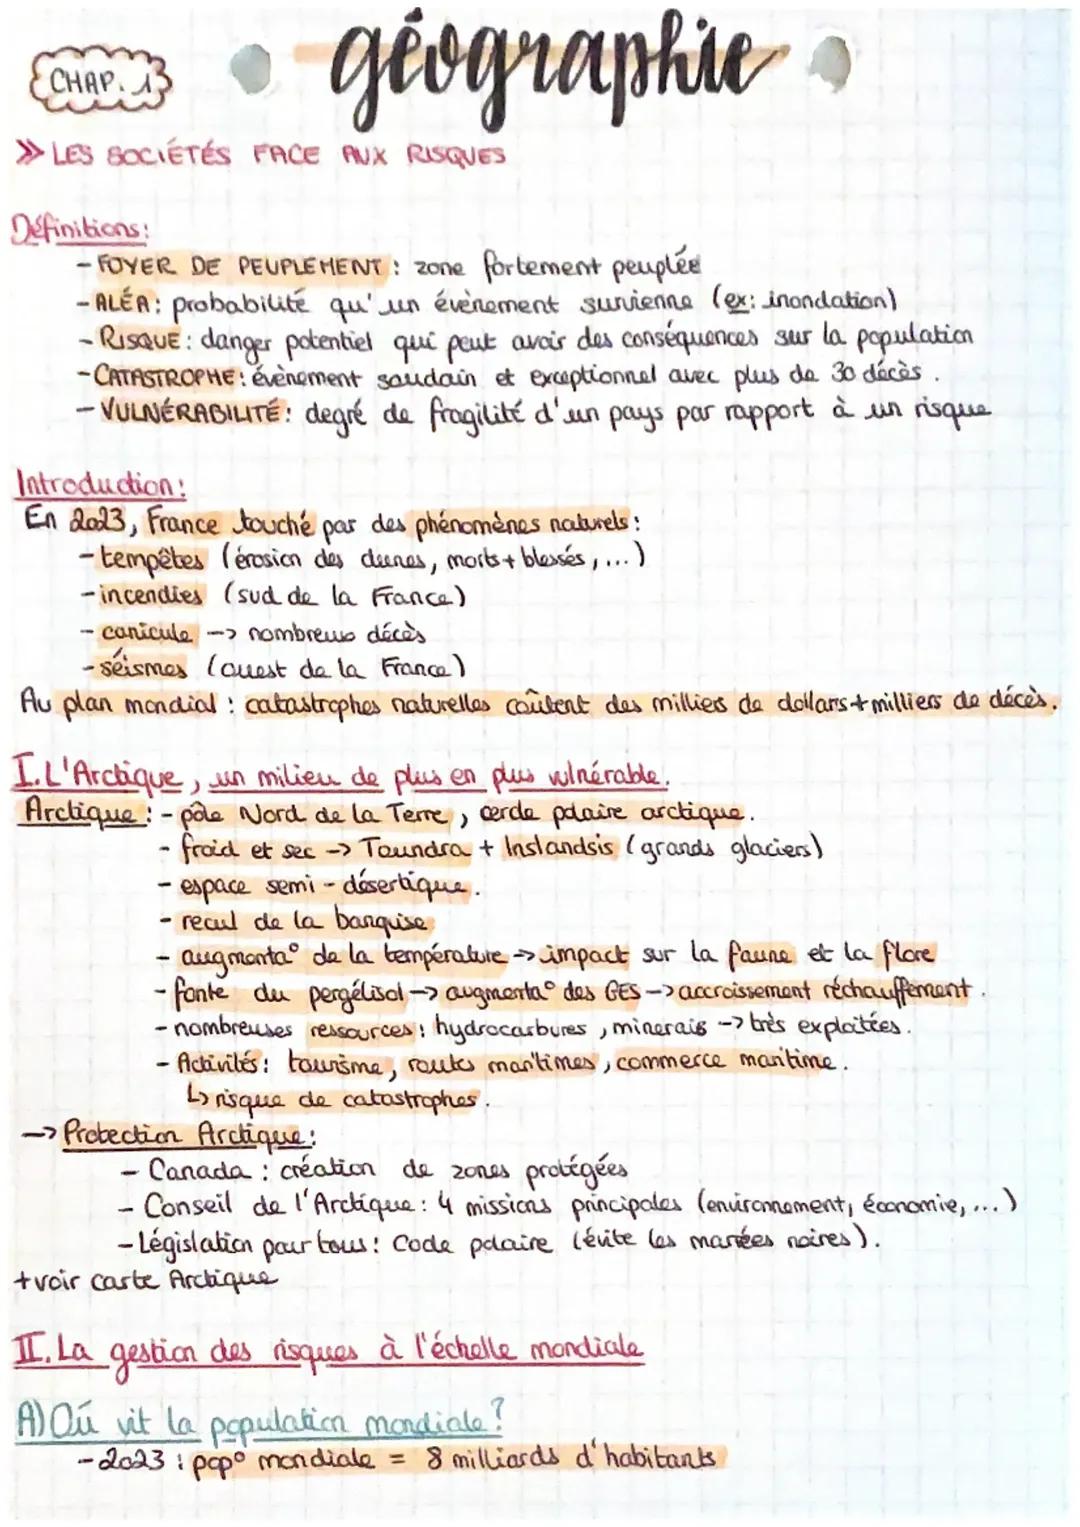 géographie
CHAP. 1
>> LES SOCIÉTÉS FACE AUX RISQUES
Définitions:
- FOYER DE PEUPLEMENT : zone fortement peuplée
- ALÉA: probabilité qu'un évènement survienne (ex: inondation)
- RISQUE: danger potentiel qui peut avoir des conséquences sur la population
- CATASTROPHE: évènement soudain et exceptionnel avec plus de 30 décès.
- VULNÉRABILITÉ: degré de fragilité d'un pays par rapport à un risque
Introduction:
En 2023, France touché par des phénomènes naturels:
- tempêtes (érosion des dunes, morts + blessés, ...)
- incendies (sud de la France)
- canicule --> nombreux décès
- séismes (ouest de la France)
Au plan mondial : catastrophes naturelles coûtent des milliers de dollars + milliers de décès.
I. L'Arctique, un milieu de plus en plus vulnérable.
Arctique : - pôle Nord de la Terre, cercle polaire arctique.
- froid et sec -> Toundra + Inslandsis (grands glaciers)
- espace semi-désertique.
- recul de la banquise
- augmenta° de la température -> impact sur la faune et la flore
- fonte du pergélisol -> augmenta° des GES -> accroissement réchauffement.
- nombreuses ressources: hydrocarbures, minerais -> très exploitées.
- Activités: tourisme, routes maritimes, commerce maritime.
↳ risque de catastrophes.
-> Protection Arctique:
- Canada : création de zones protégées
- Conseil de l'Arctique: 4 missions principales (environnement, économie, ...)
- Législation pour tous: Code polaire (évite les marées noires).
+ voir carte Arctique
II. La gestion des risques à l'échelle mondiale
A) Où vit la population mondiale?
- 2023 : pop° mondiale = 8 milliards d'habitants